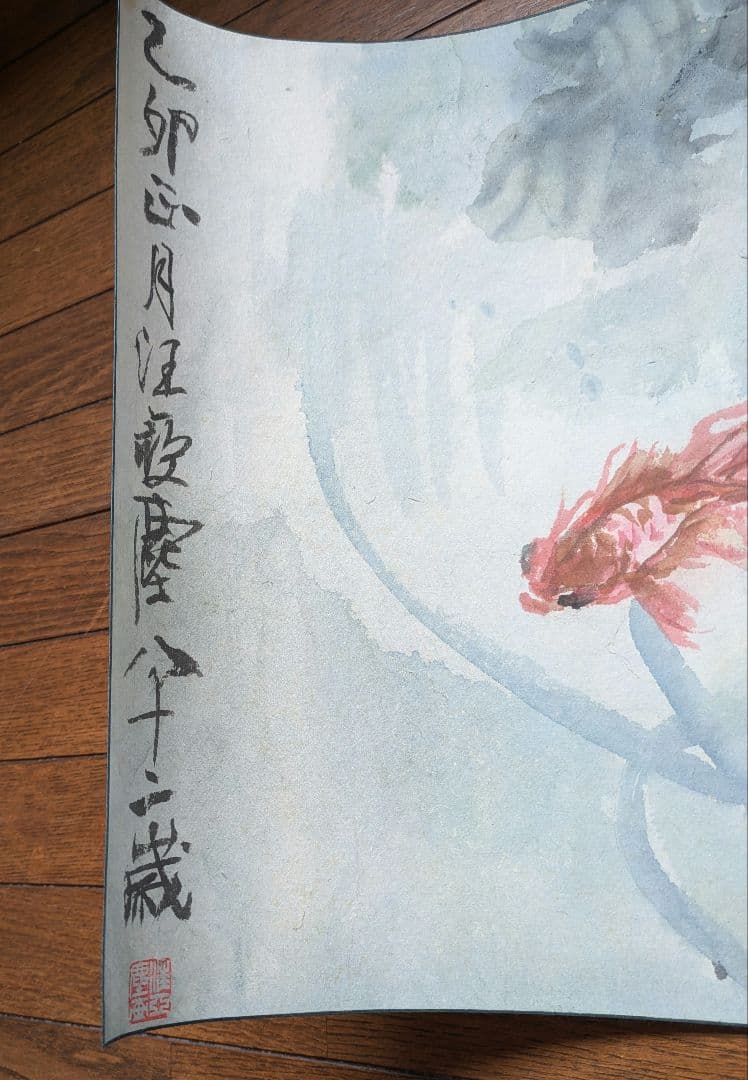 乙卯正月汪亞塵八十二歲